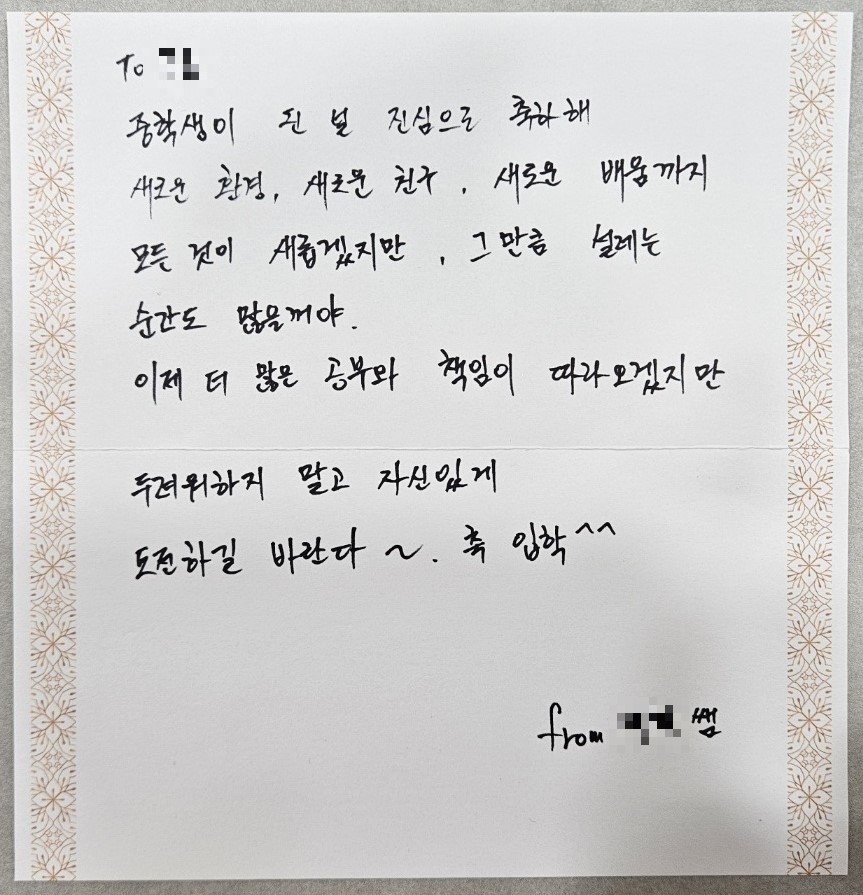 To
중학생이 된 널 진심으로 축하해
새로운 환경, 새로운 친구, 새로운 배움까지
모든 것이 새롭겠지만, 그만큼 설레는
순간도 많을꺼야.
이제 더 많은 공부와 책임이 따라오겠지만
두려워하지 말고 자신있게
도전하길 바란다 ~. 축 입학^^
from 쌤